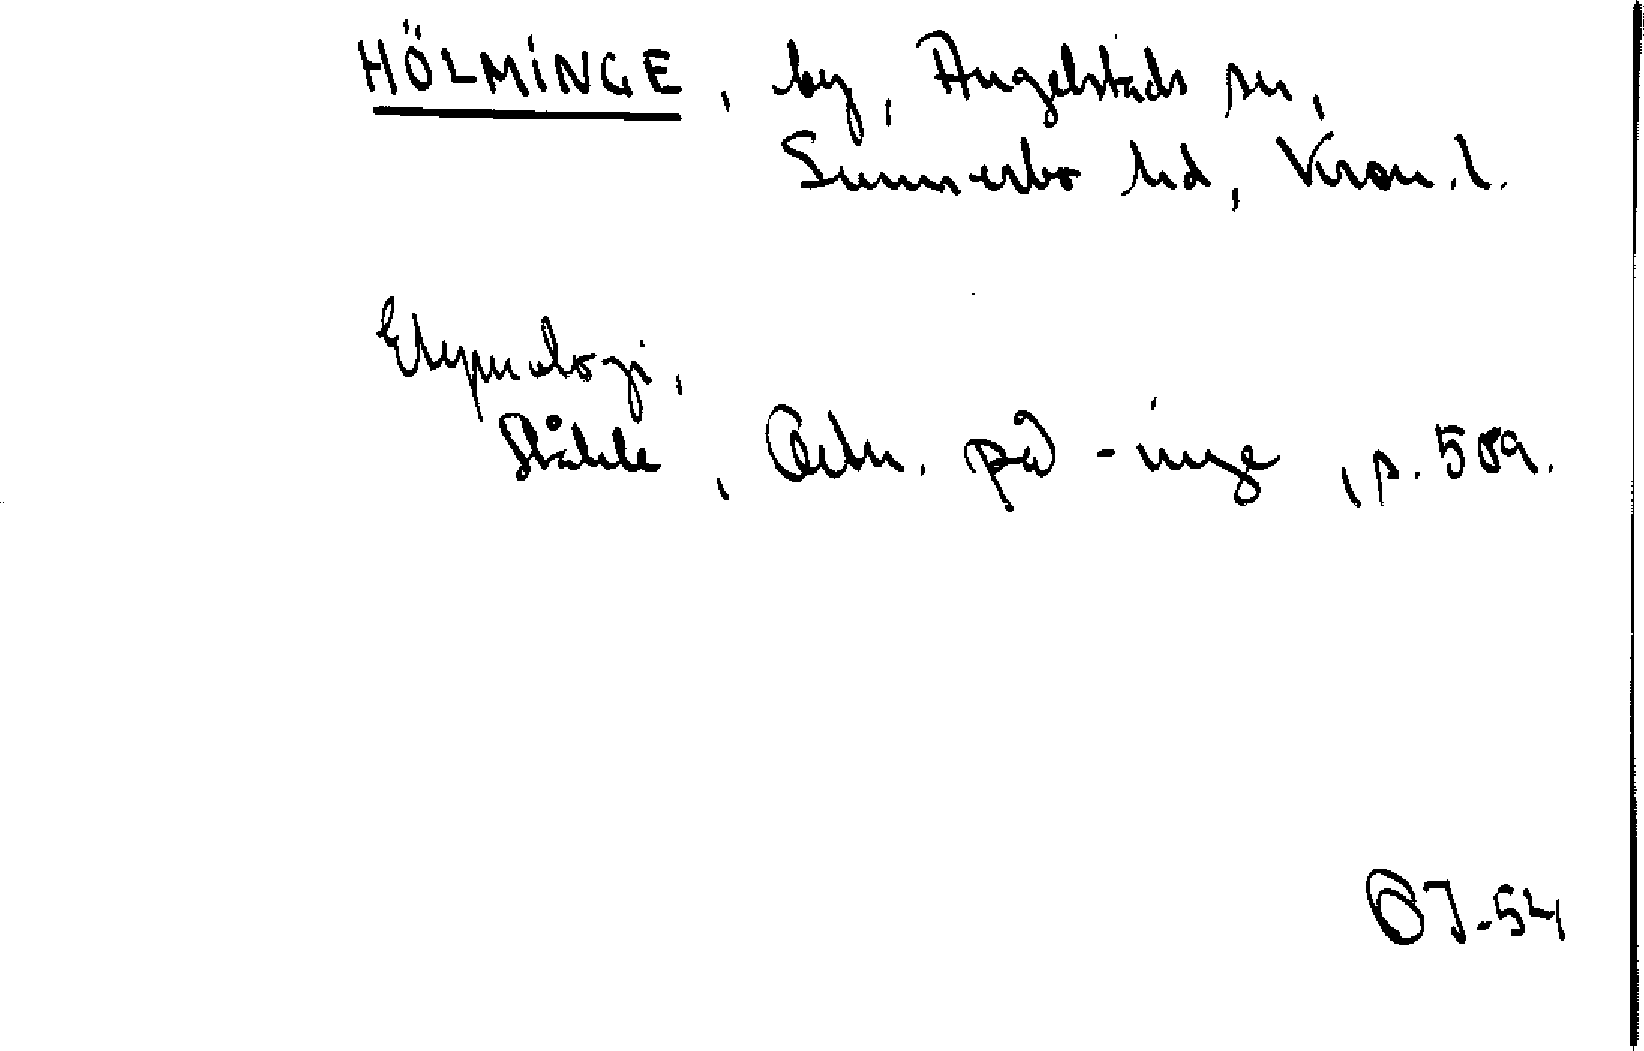 HÖLMINGE, by, Angelstads sn,
Sunnerbo hd, Kron. l.
Etymologi,
Ståhle, Ortn. på -inge, p. 509.